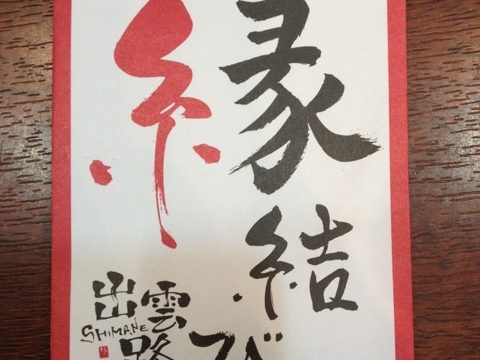 縁結び
出雲路
SHIMANE